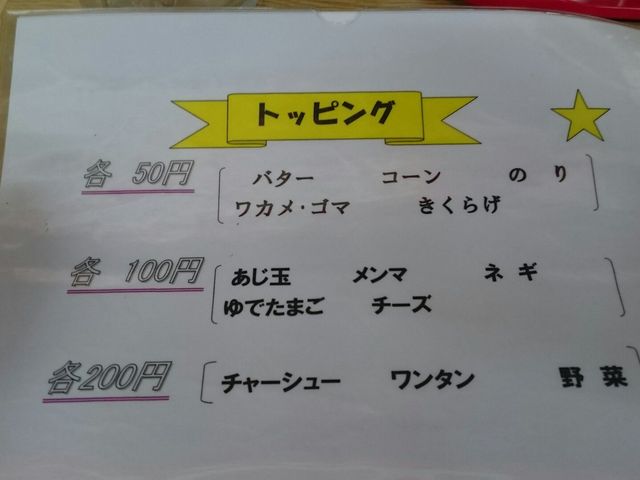 トッピング
各 50円 バター コーン のり
ワカメ・ゴマ きくらげ
各 100円 あじ玉 メンマ ネギ
ゆでたまご チーズ
各200円 チャーシュー ワンタン 野菜